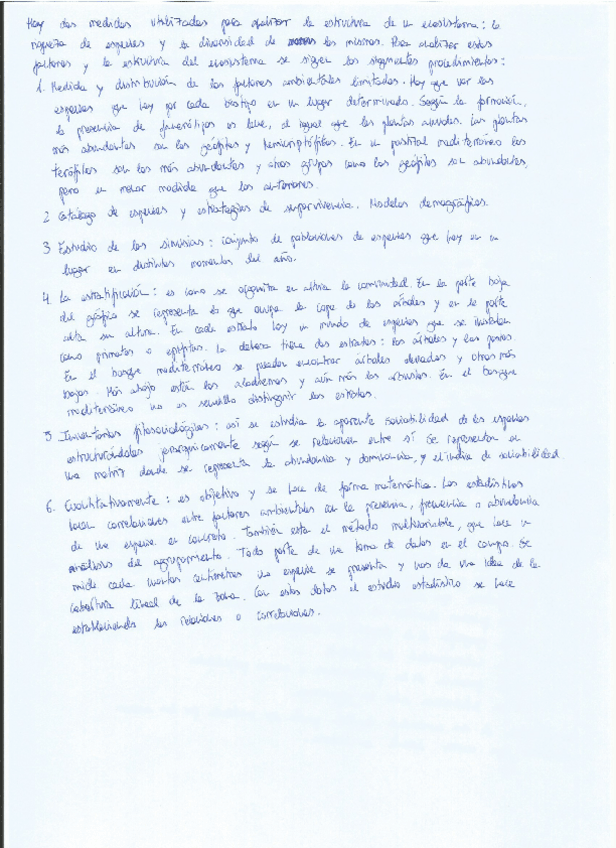 Hay dos medidas utilizadas para analizar la estructura de un ecosistema: la
riqueza de especies y la diversidad de las mismas. Para analizar estos
factores y la estructura del ecosistema se siguen los siguientes procedimientos:
1. Medida y distribución de los factores ambientales limitados. Hay que ver las
especies que hay por cada biotipo en un lugar determinado. Según la formación,
la presencia de fanerófitos es leve, al igual que las plantas anuales. Las plantas
más abundantes son los geófitos y hemicriptófitos. En un pastizal mediterráneo los
terófitos son los más abundantes y otros grupos como los geófitos son abundantes,
pero en menor medida que los anteriores.
2 Catálogo de especies y estrategias de supervivencia. Modelos demográficos.
3 Estudio de las sinusias: conjunto de poblaciones de especies que hay en un
lugar en distintos momentos del año.
4. La estratificación: es como se organiza en altura la comunidad. En la parte baja
del gráfico se representa lo que ocupa la copa de los árboles y en la parte
alta su altura. En cada estrato hay un mundo de especies que se instalan
como primates o epífitas. La dehesa tiene dos estratos: los árboles y los pastos.
En el bosque mediterráneo se pueden encontrar árboles elevados y otros más
bajos. Más abajo están los y aún más los arbustos. En el bosque
mediterráneo no es sencillo distinguir los estratos.
5. Inventarios fitosociológicos: así se estudia la aparente sociabilidad de las especies
estructurándolas jerárquicamente según se relacionan entre sí. Se representan en
una matriz donde se representa la abundancia y dominancia, y el índice de sociabilidad.
6. Cuantitativamente: es objetivo y se hace de forma matemática. Los estadísticos
hacen correlaciones entre factores ambientales con la presencia, frecuencia o abundancia
de una especie en concreto. También está el método multivariable, que hace un
análisis del agrupamiento. Todo parte de una toma de datos en el campo. Se
mide cada cuantos centímetros una especie se presenta y nos da una idea de la
cobertura lineal de la zona. Con estos datos el estudio estadístico se hace
estableciendo las relaciones o correlaciones.